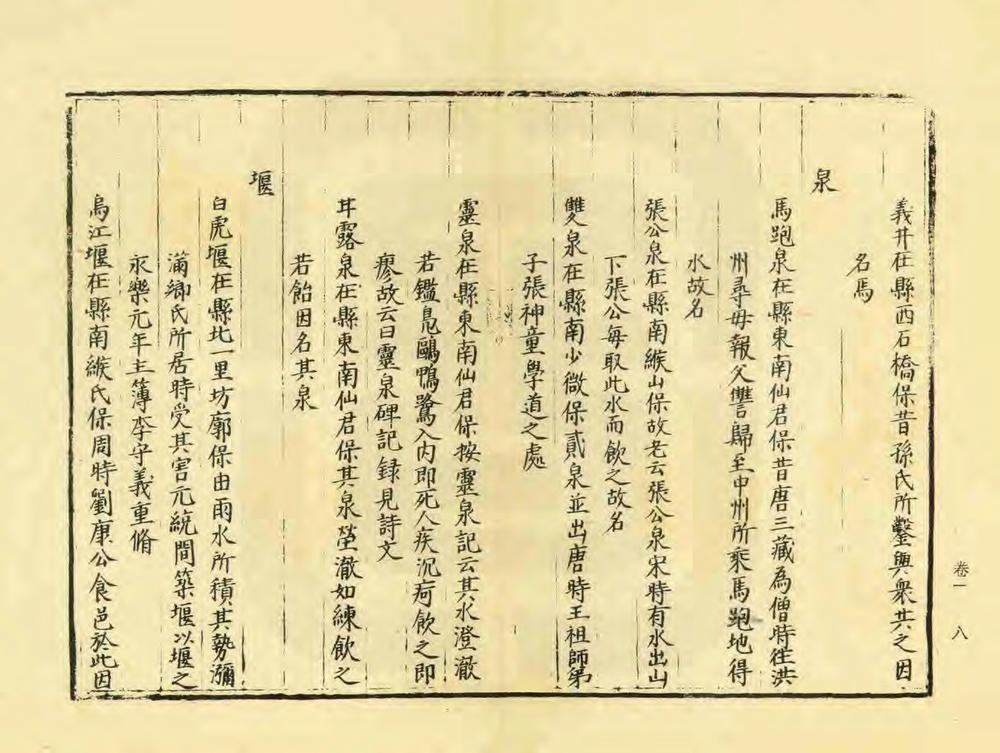 義井在縣西石橋保昔孫氏所鑿與衆共之因
名焉
泉
馬跑泉在縣東南仙君保昔唐三藏為僧時徃洪
州尋母報父讐歸至中州所乘馬跑地得
水故名
張公泉在縣南緱山保故老云張公泉宋時有水出山
下張公每取此水而飲之故名
雙泉在縣南少微保貳泉並出唐時王祖師第
子張神童學道之處
靈泉在縣東南仙君保按靈泉記云其水澄澈
若鑑鳧鷗鴨鷺入内即死人疾沉疴飲之即
瘳故云曰靈泉碑記録見詩文
甘露泉在縣東南仙君保其泉瑩澈如練飲之
若飴因名其泉
堰
白虎堰在縣北一里坊廓保由雨水所積其勢瀰
滿鄉氏所居時受其害元統間築堰以堰之
永樂元年主簿李守義重脩
烏江堰在縣南緱氏保周時劉康公食邑於此因
卷一
八